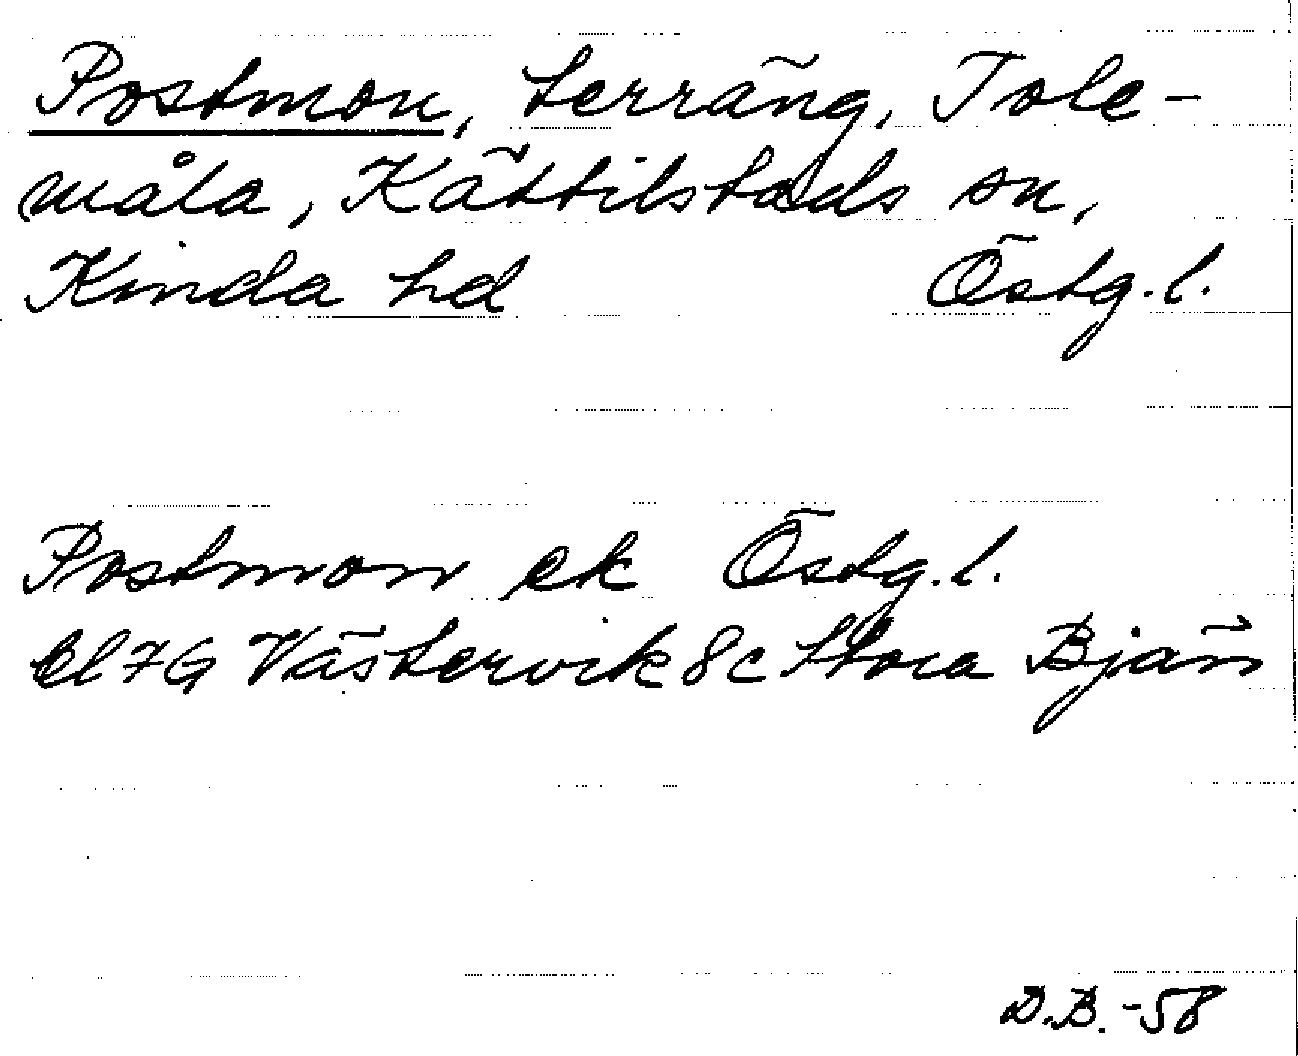 Postmon, terräng, Tole-
måla, Kättilstads sn,
Kinda hd Östg.l.
Postmon ek Östg.l.
bl 7G Västervik 8c Stora Bjän
D.B.-58